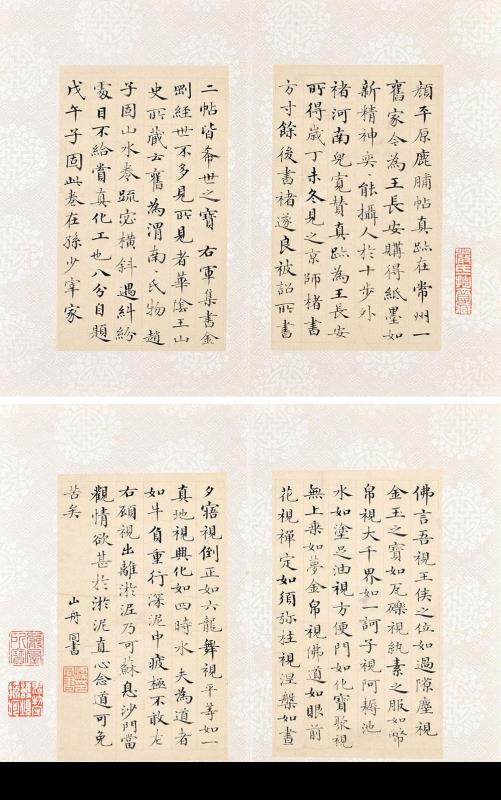 顏平原鹿脯帖真跡在常州一
舊家今為王長安購得紙墨如
新精神奕〻能攝人於十步外
褚河南兒寬贊真跡為王長安
所得歲丁未冬見之京師楮書
方寸餘後書褚遂良被詔所書
二帖皆希世之寶 右軍集書金
剛經世不多見所見者華陰王山
史所藏云舊為渭南〻氏物 趙
子固山水卷疏密橫斜遇糾紛
處目不給賞真化工也八分自題
戊午子固此卷在孫少宰家
佛言吾視王侯之位如過隙塵視
金玉之寶如瓦礫視紈素之服如幣
帛視大千界如一訶子視阿耨池
水如塗足油視方便門如化寶聚視
無上乘如夢金帛視佛道如眼前
花視禪定如須彌柱視涅槃如晝
夕寤視倒正如六龍舞視平等如一
真地視興化如四時木 夫為道者
如牛負重行深泥中疲極不敢左
右顧視出離淤泥乃可蘇息沙門當
觀情欲甚於淤泥直心念道可免
苦矣
山舟同書